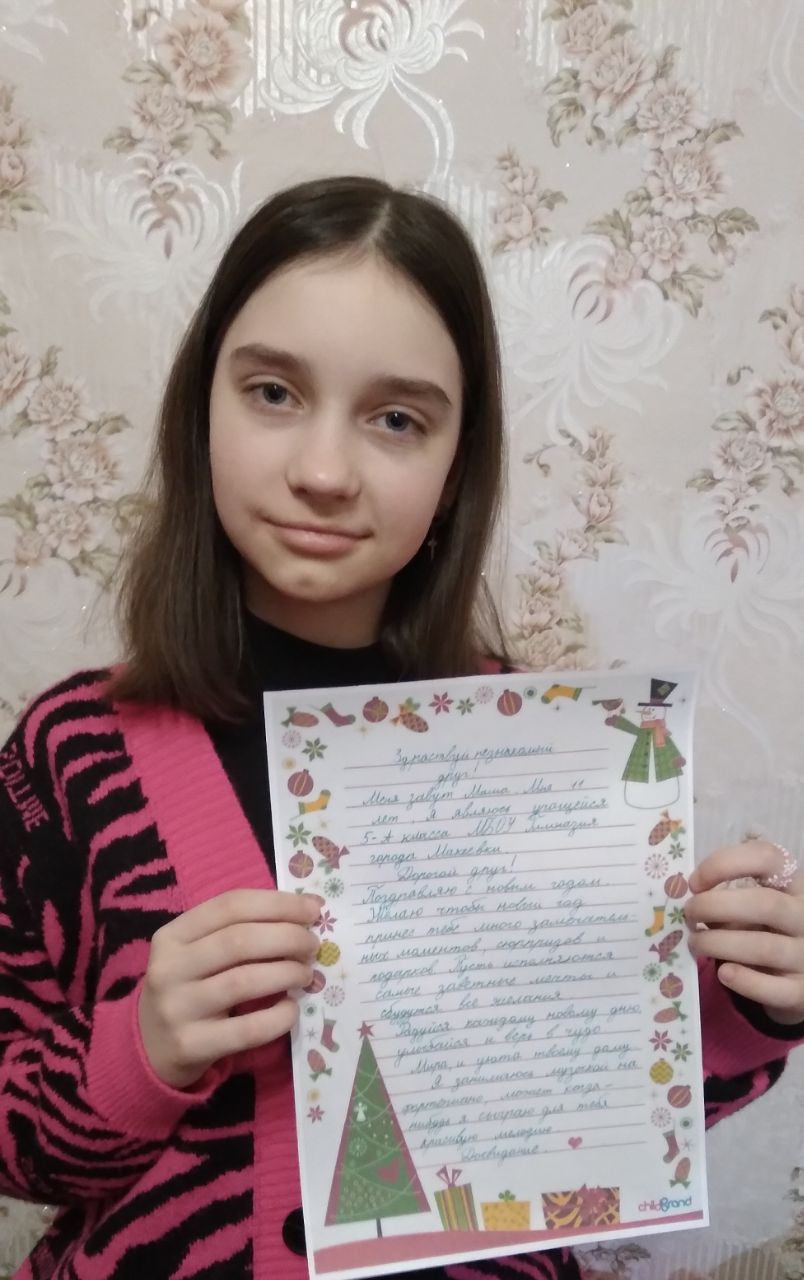 Здраствуй незнакомый
друг!
Меня завут Маша. Мне 11
лет, я являюсь учащейся
5-А класса МБОУ Гимназия
города Макеевки.
Дорогой друг!
Поздравляю с новым годом.
Желаю чтобы новый год
принес тебе много замечатель-
ных моментов, сюрпризов и
подарков. Пусть исполняются
самые заветные мечты и
сбудутся все желания.
Радуйся каждому новому дню,
улыбайся и верь в чудо.
Мира, и уюта твоему дому.
Я занимаюсь музыкой на
фортопиано, может когда-
нибудь я сыграю для тебя
красивую мелодию.
Досвидание.
childBrand